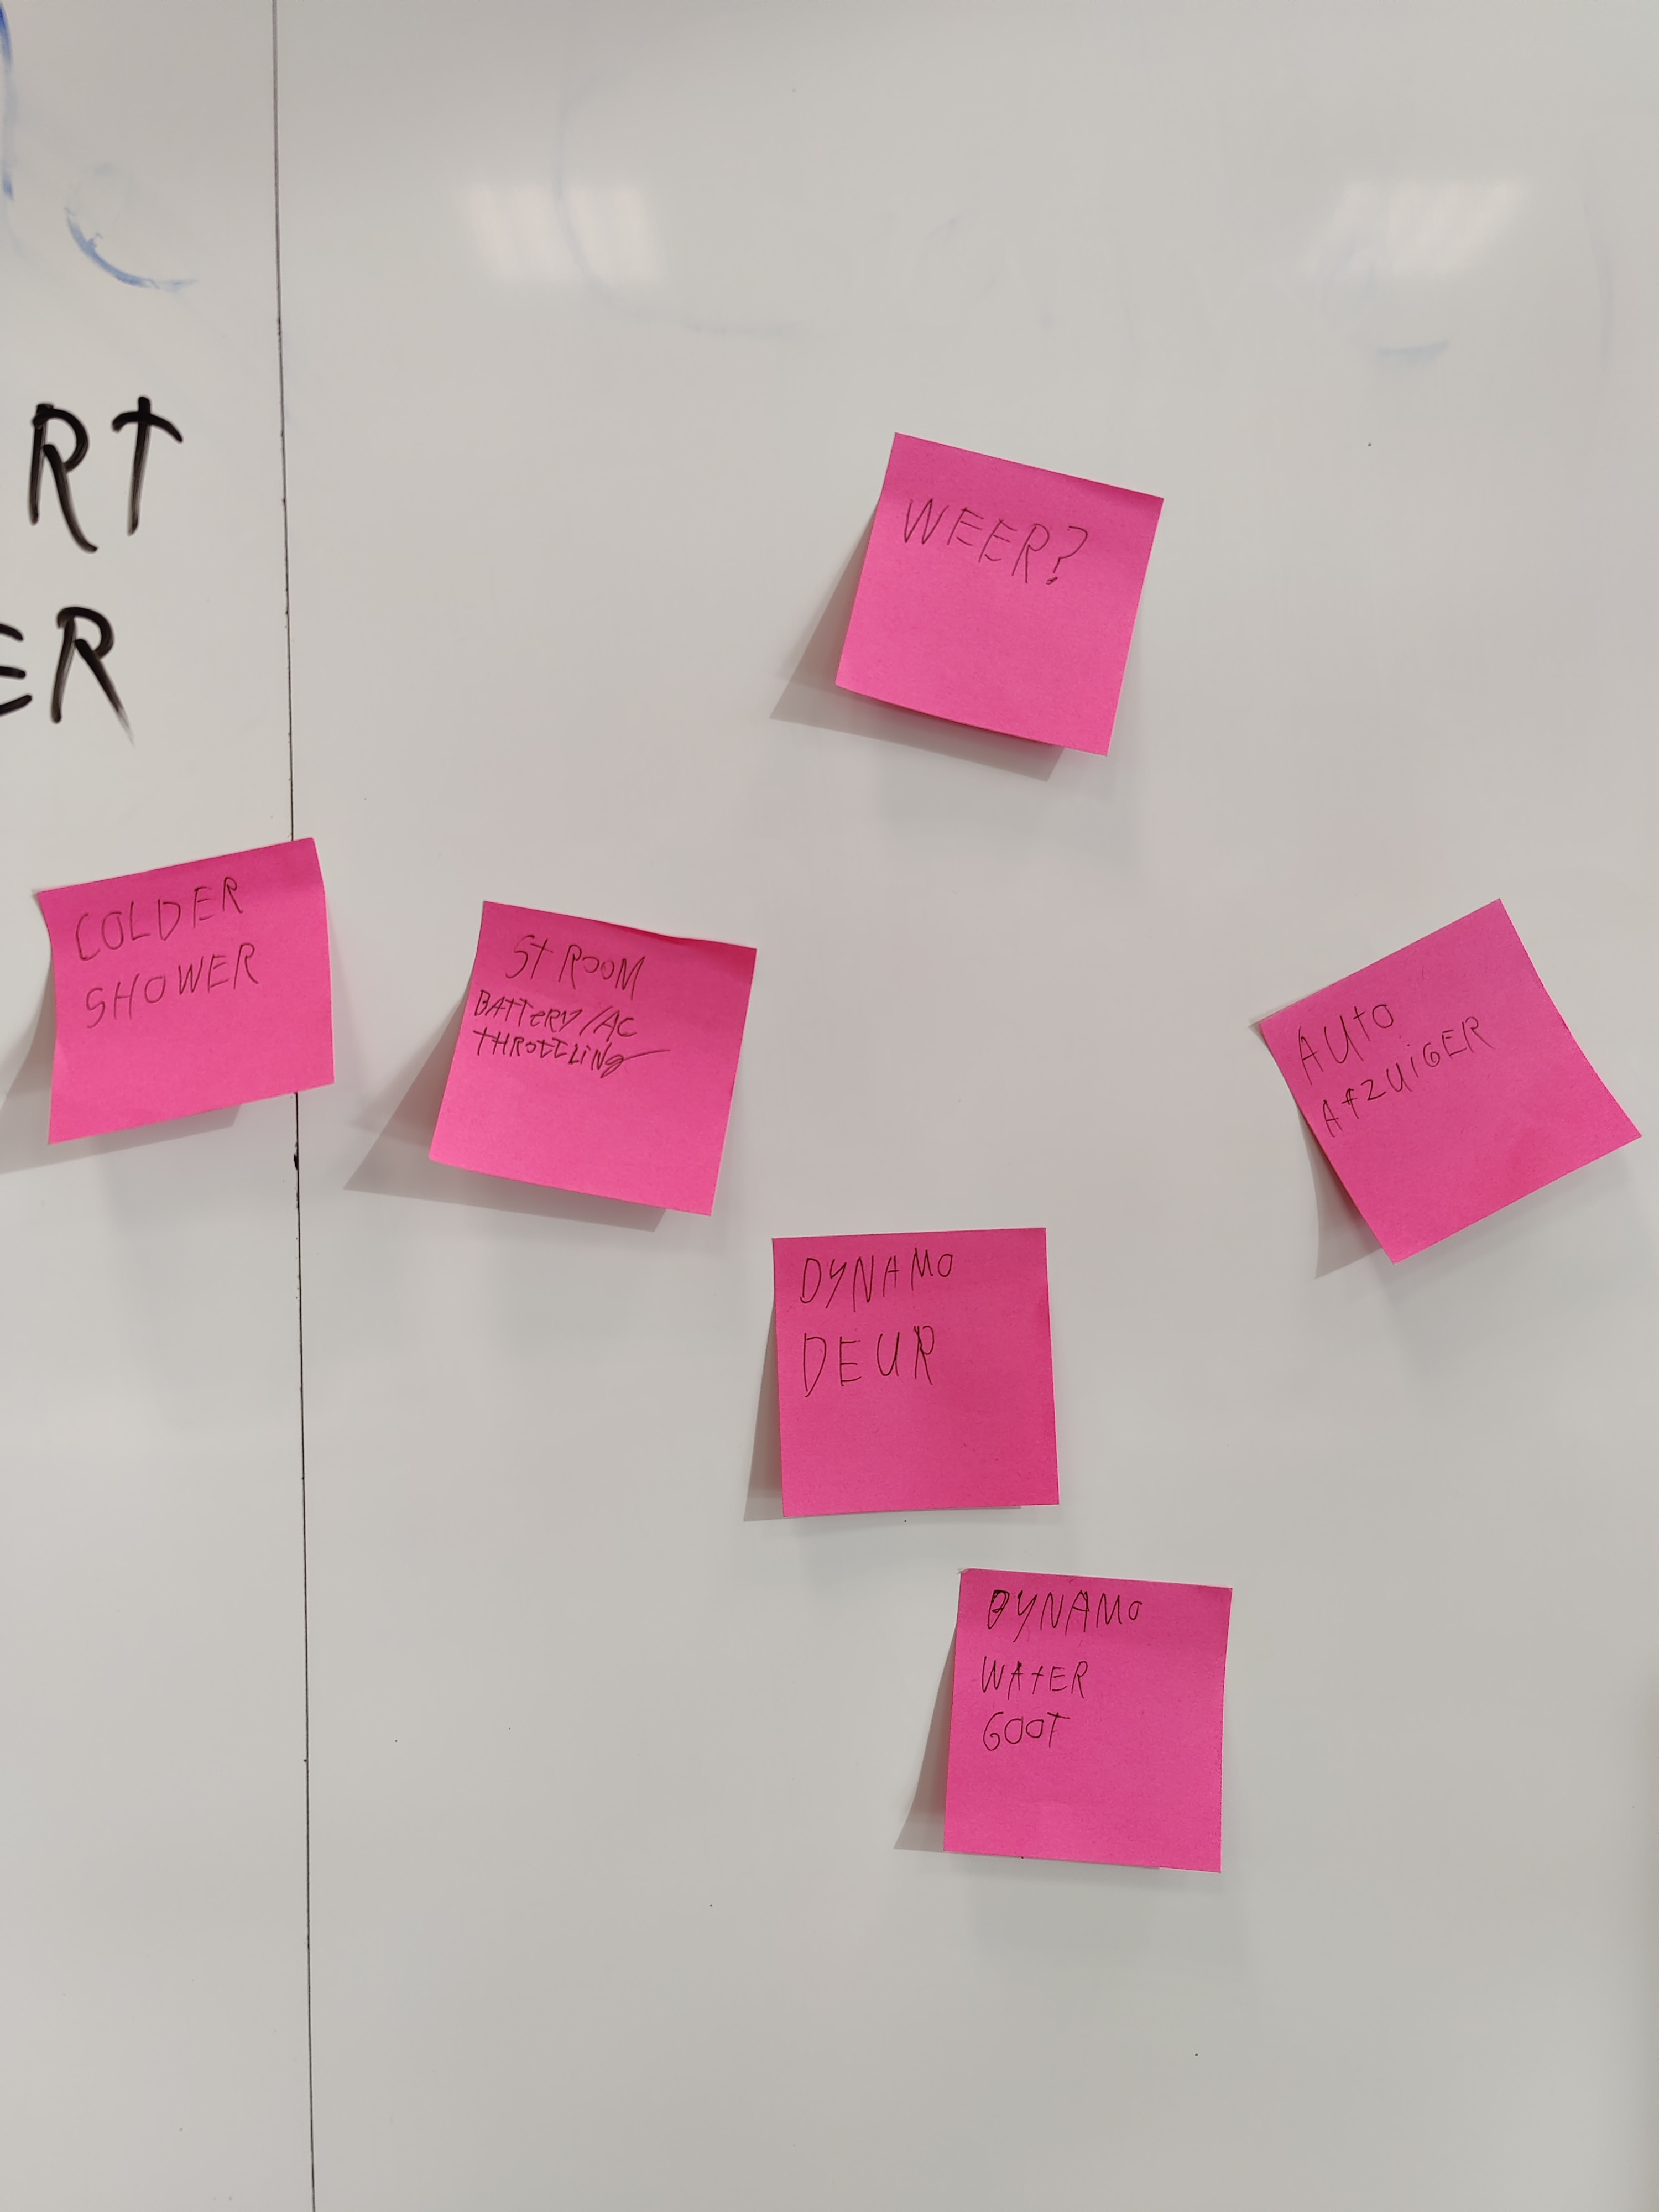 RT
ER
WEER?
COLDER
SHOWER
STROOM
BATTERY/AC
THROTTLING
AUTO
AFZUIGER
DYNAMO
DEUR
DYNAMO
WATER
GOOT